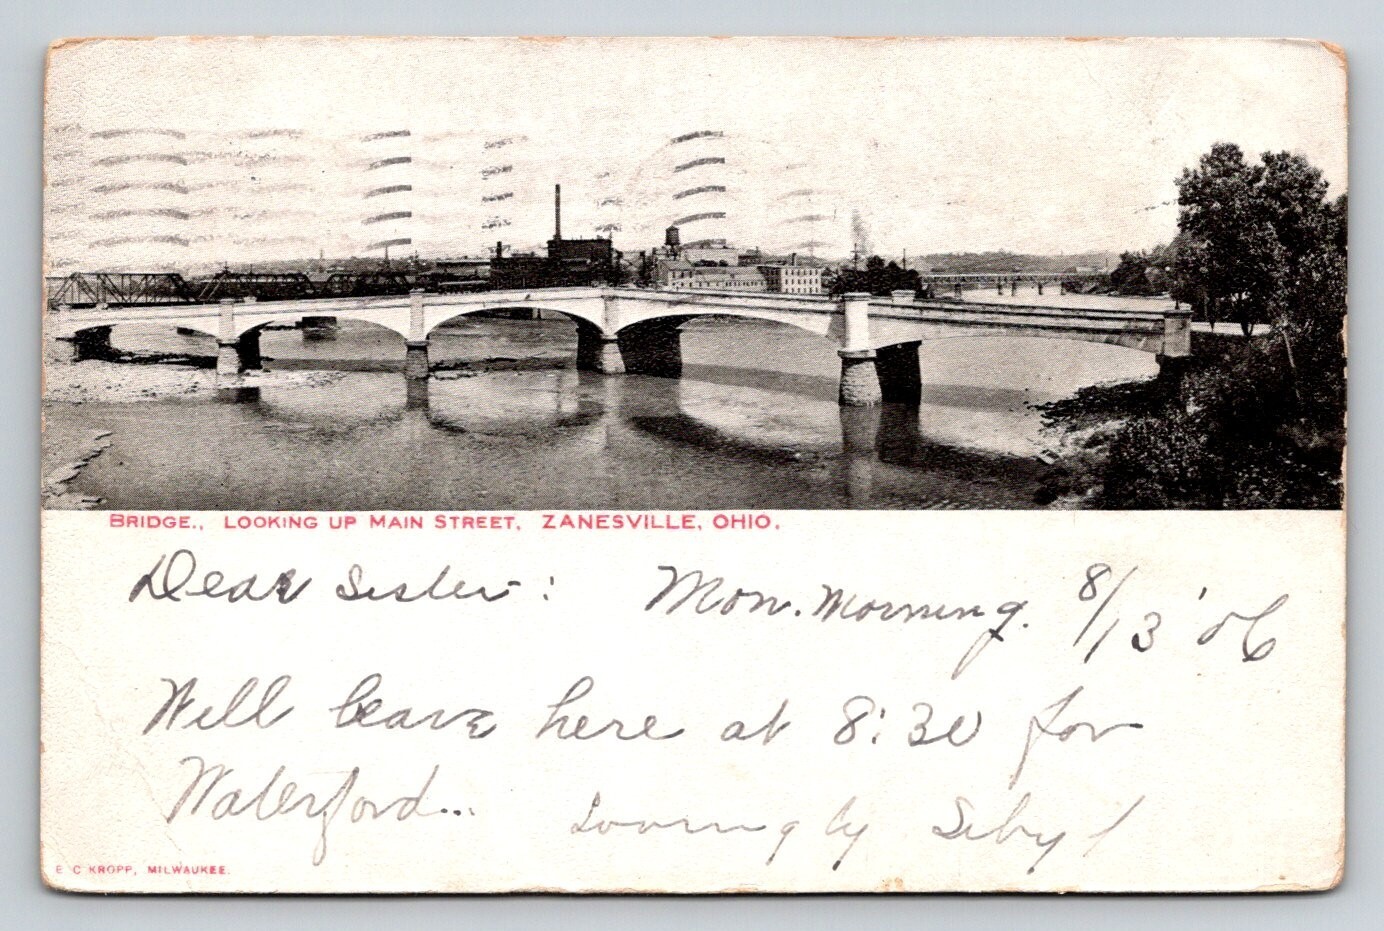 BRIDGE., LOOKING UP MAIN STREET, ZANESVILLE, OHIO.
Dear Sister: Mon. Morning. 8/13 '06
Will leave here at 8:30 for
Waterford...
Lovingly Sibyl
E C KROPP, MILWAUKEE.